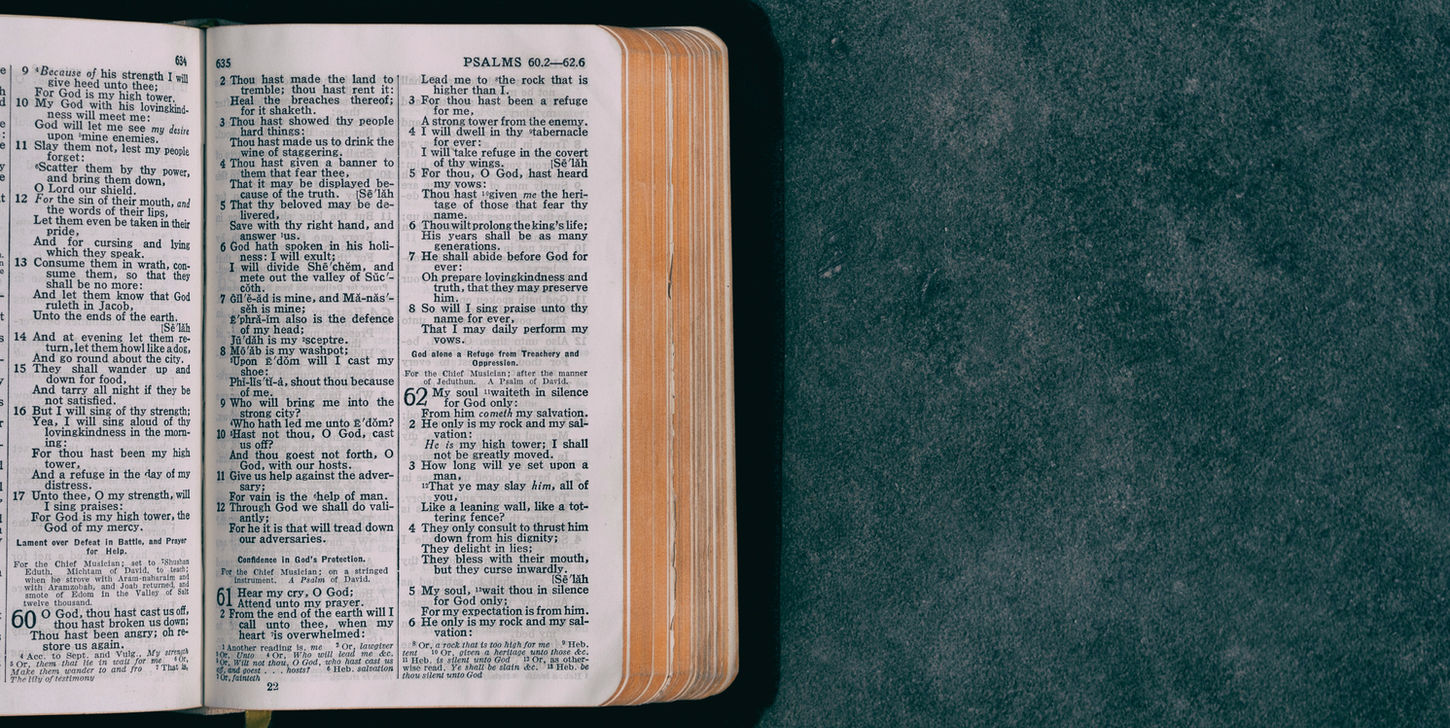 634
9 ⁴Because of his strength I will
give heed unto thee;
For God is my high tower.
10 My God with his lovingkind-
ness will meet me:
God will let me see my desire
upon ⁵mine enemies.
11 Slay them not, lest my people
forget:
⁶Scatter them by thy power,
and bring them down,
O Lord our shield.
12 For the sin of their mouth, and
the words of their lips,
Let them even be taken in their
pride,
And for cursing and lying
which they speak.
13 Consume them in wrath, con-
sume them, so that they
shall be no more:
And let them know that God
ruleth in Jacob,
Unto the ends of the earth.
[Sē´läh
14 And at evening let them re-
turn, let them howl like a dog,
And go round about the city.
15 They shall wander up and
down for food,
And tarry all night if they be
not satisfied.
16 But I will sing of thy strength;
Yea, I will sing aloud of thy
lovingkindness in the morn-
ing:
For thou hast been my high
tower,
And a refuge in the day of my
distress.
17 Unto thee, O my strength, will
I sing praises:
For God is my high tower, the
God of my mercy.
Lament over Defeat in Battle, and Prayer
for Help.
For the Chief Musician; set to ⁷Shushan
Eduth. Michtam of David, to teach;
when he strove with Aram-naharaim and
with Aramzobah, and Joab returned, and
smote of Edom in the Valley of Salt
twelve thousand.
60 O God, thou hast cast us off,
thou hast broken us down;
Thou hast been angry; oh re-
store us again.
⁴ Acc. to Sept. and Vulg., My strength
⁵ Or, them that lie in wait for me ⁶ Or,
Make them wander to and fro ⁷ That is,
The lily of testimony
635
PSALMS 60.2—62.6
2 Thou hast made the land to
tremble; thou hast rent it:
Heal the breaches thereof;
for it shaketh.
3 Thou hast showed thy people
hard things:
Thou hast made us to drink the
wine of staggering.
4 Thou hast given a banner to
them that fear thee,
That it may be displayed be-
cause of the truth. [Sē´läh
5 That thy beloved may be de-
livered,
Save with thy right hand, and
answer ¹us.
6 God hath spoken in his holi-
ness: I will exult;
I will divide Shē´chĕm, and
mete out the valley of Sŭc´-
cŏth.
7 Gĭl´ē-ăd is mine, and Mă-năs´-
sĕh is mine;
Ē´phrā-ĭm also is the defence
of my head;
Jū´dăh is my ²sceptre.
8 Mō´ăb is my washpot;
³Upon Ē´dŏm will I cast my
shoe:
Phĭ-lĭs´tĭ-à, shout thou because
of me.
9 Who will bring me into the
strong city?
⁴Who hath led me unto Ē´dŏm?
10 ⁵Hast not thou, O God, cast
us off?
And thou goest not forth, O
God, with our hosts.
11 Give us help against the adver-
sary;
For vain is the ⁶help of man.
12 Through God we shall do vali-
antly;
For he it is that will tread down
our adversaries.
Confidence in God's Protection.
For the Chief Musician; on a stringed
instrument. A Psalm of David.
61 Hear my cry, O God;
Attend unto my prayer.
2 From the end of the earth will I
call unto thee, when my
heart ⁷is overwhelmed:
¹ Another reading is, me ² Or, lawgiver
³ Or, Unto ⁴ Or, Who will lead me &c.
⁵ Or, Wilt not thou, O God, who hast cast us
off, and goest . . . hosts? ⁶ Heb. salvation
⁷ Or, fainteth
22
Lead me to ⁸the rock that is
higher than I.
3 For thou hast been a refuge
for me,
A strong tower from the enemy.
4 I will dwell in thy ⁹tabernacle
for ever:
I will take refuge in the covert
of thy wings. [Sē´läh
5 For thou, O God, hast heard
my vows:
Thou hast ¹⁰given me the heri-
tage of those that fear thy
name.
6 Thou wilt prolong the king's life;
His years shall be as many
generations.
7 He shall abide before God for
ever:
Oh prepare lovingkindness and
truth, that they may preserve
him.
8 So will I sing praise unto thy
name for ever,
That I may daily perform my
vows.
God alone a Refuge from Treachery and
Oppression.
For the Chief Musician; after the manner
of Jeduthun. A Psalm of David.
62 My soul ¹¹waiteth in silence
for God only:
From him cometh my salvation.
2 He only is my rock and my sal-
vation:
He is my high tower; I shall
not be greatly moved.
3 How long will ye set upon a
man,
¹²That ye may slay him, all of
you,
Like a leaning wall, like a tot-
tering fence?
4 They only consult to thrust him
down from his dignity;
They delight in lies;
They bless with their mouth,
but they curse inwardly.
[Sē´läh
5 My soul, ¹³wait thou in silence
for God only;
For my expectation is from him.
6 He only is my rock and my sal-
vation:
⁸ Or, a rock that is too high for me ⁹ Heb.
tent ¹⁰ Or, given a heritage unto those &c.
¹¹ Heb. is silent unto God ¹² Or, as other-
wise read, Ye shall be slain &c. ¹³ Heb. be
thou silent unto God